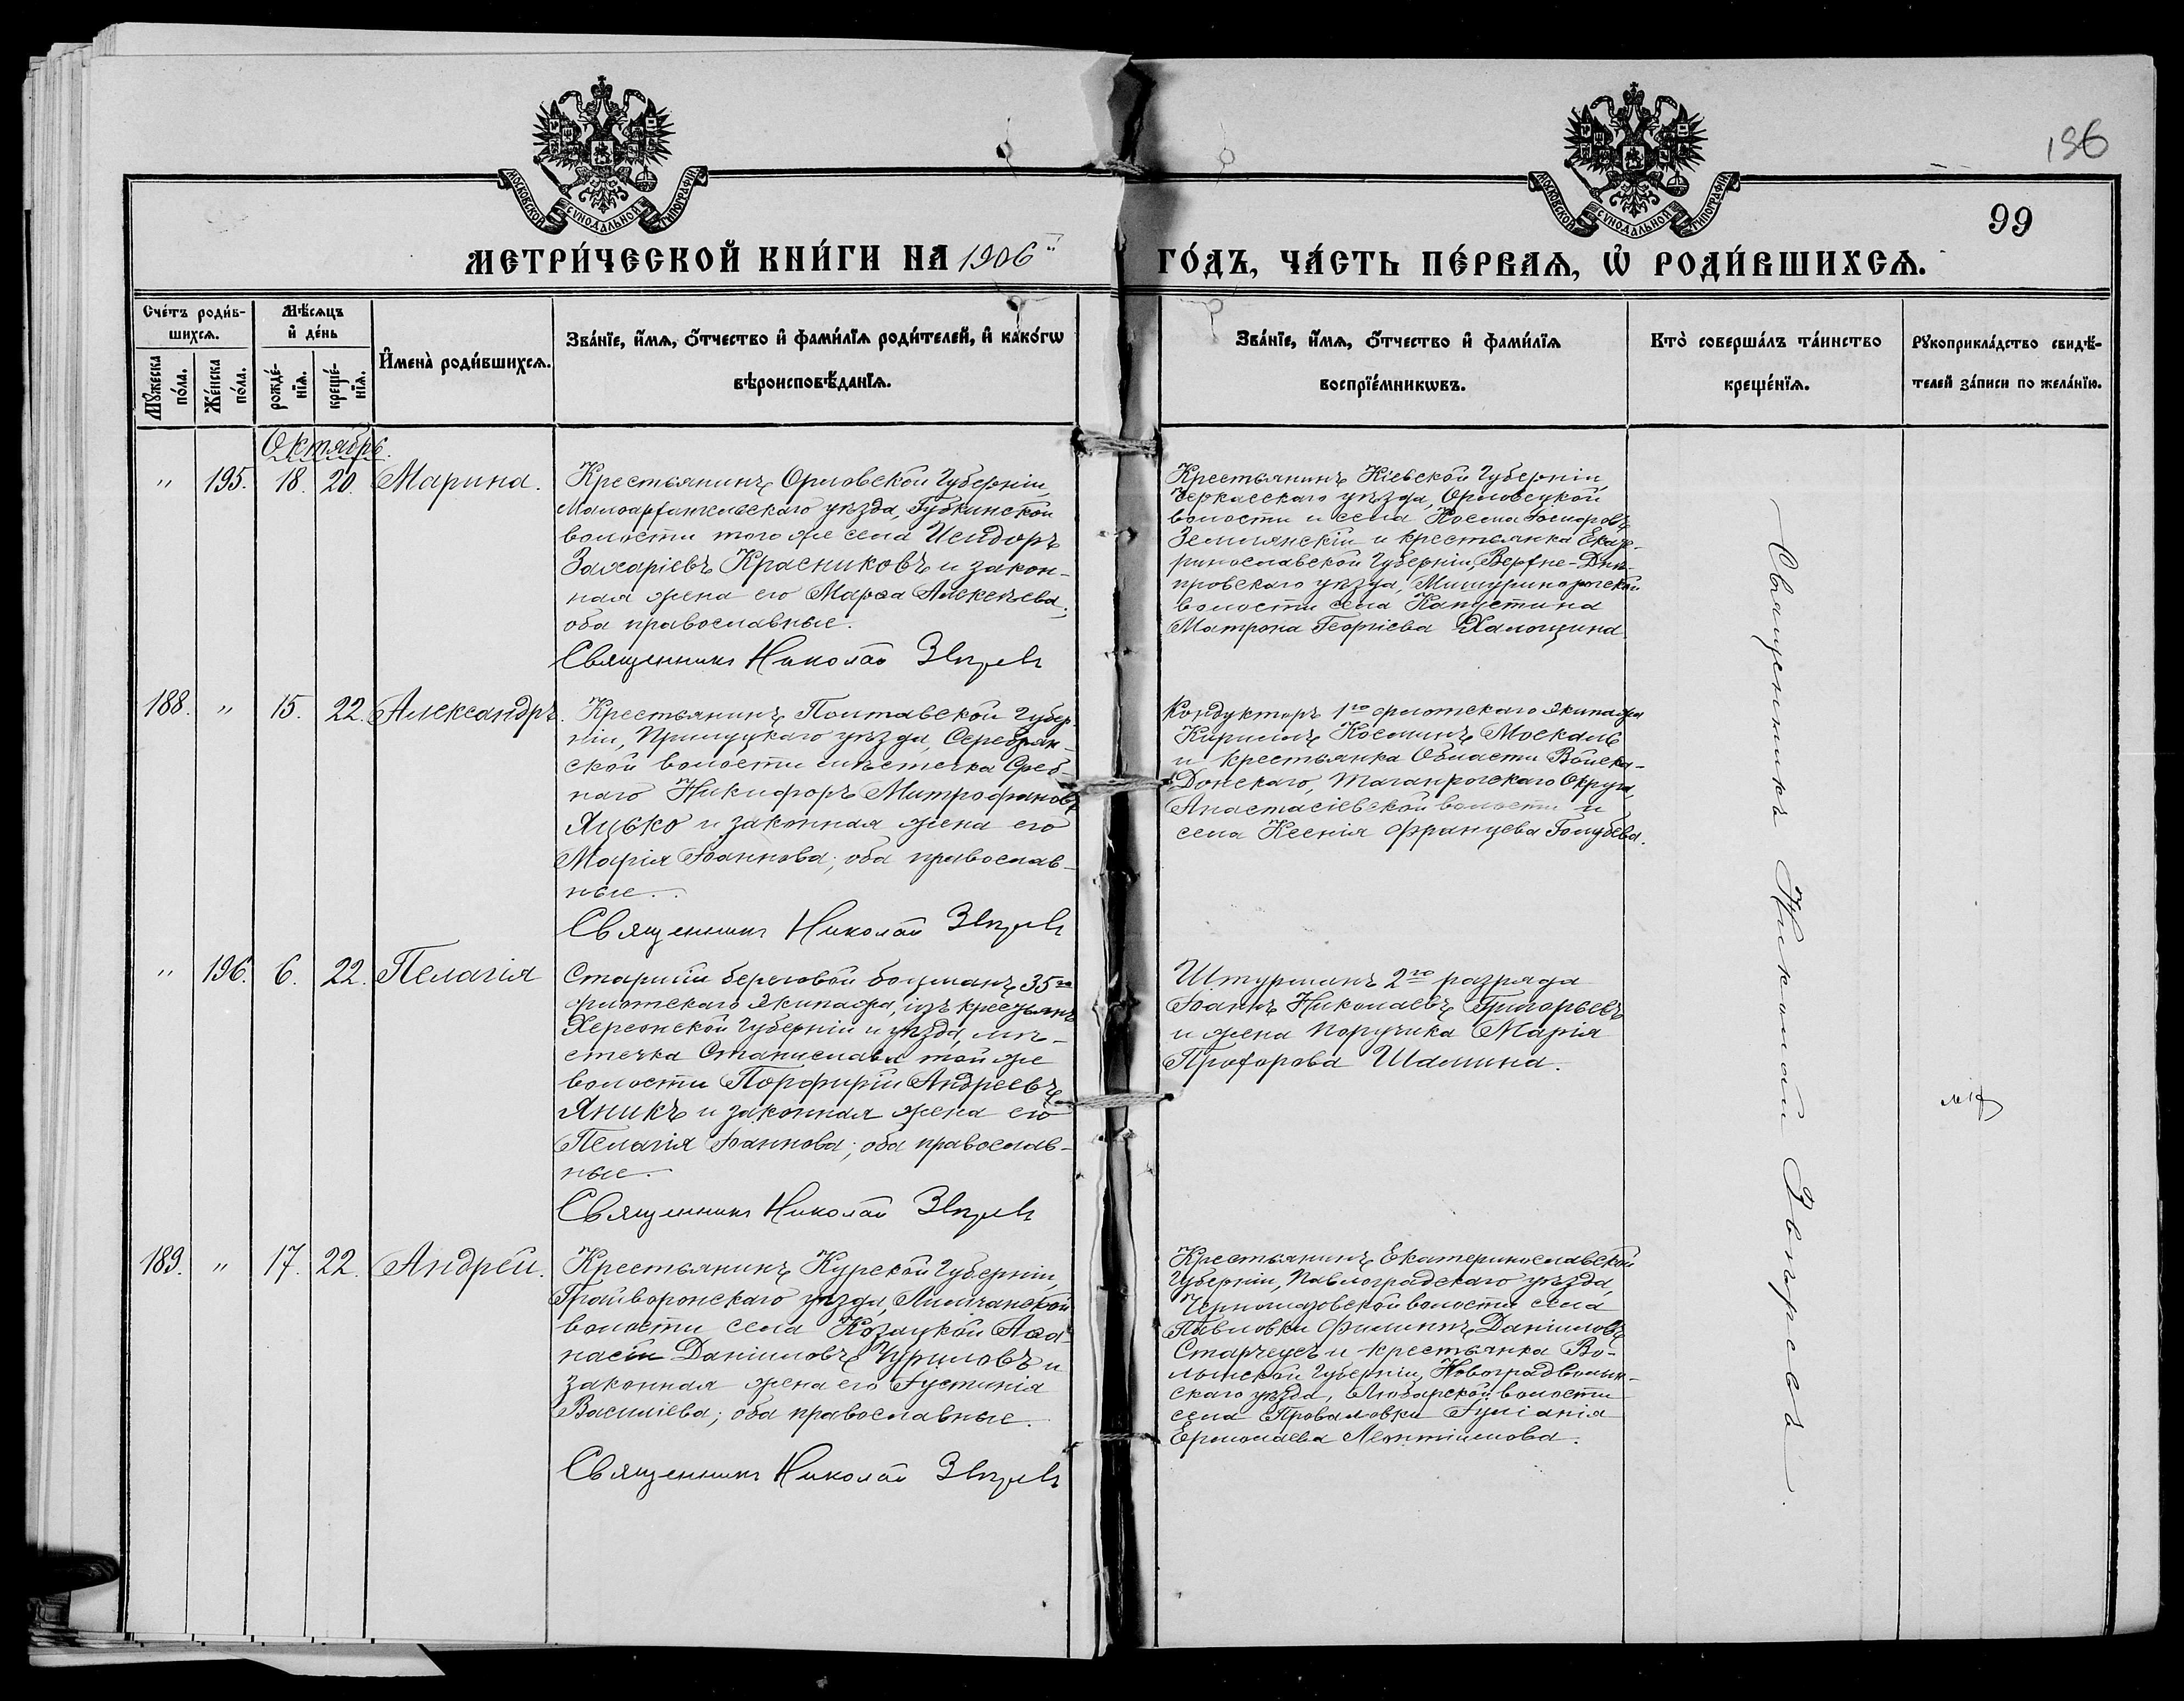 МОСКОВСКОЙ СУНОДАЛЬНОЙ ТИПОГРАФІИ
МОСКОВСКОЙ СУНОДАЛЬНОЙ ТИПОГРАФІИ
196
99
МЕТРИ́ЧЕСКОЙ КНИ́ГИ НА 1906й
ГО́ДЪ, ЧА́СТЬ ПЕ́РВАѦ, Ѡ РОДИ́ВШИХСѦ.
Сче́тъ роди́в-
шихсѧ.
Мꙋжеска по́ла.
Же́нска по́ла.
Мѣ́сѧцъ
и де́нь
рожде́-
нїѧ.
креще́-
нїѧ.
Имена̀ роди́вшихсѧ.
Зва́нїе, и́мѧ, о́тчество и фами́лїѧ роди́телей, и како́гѡ
вѣроисповѣ́данїѧ.
Зва́нїе, и́мѧ, о́тчество и фами́лїѧ
воспрїе́мникѡвъ.
Кто̀ соверша́лъ та́инство
креще́нїѧ.
Рꙋкоприкла́дство свидѣ́-
телей за́писи по жела́нїю.
Октябрь.
" 195. 18. 20. Марина.
Крестьянинъ Орловской Губерніи,
Малоархангельскаго уѣзда, Губкинской
волости того же села Исидоръ
Захаріевъ Красниковъ и закон-
ная жена его Марѳа Алексѣева,
оба православные.
Священникъ Николай Звѣревъ
Крестьянинъ Кіевской Губерніи,
Черкасскаго уѣзда, Орловецкой
волости и села Косма
Землянскій и крестьянка Екате-
ринославской Губерніи, Верхне-Днѣ-
провскаго уѣзда, Мишуринорогской
волости села Капустина
Матрона Георгіева Халощина.
188. " 15. 22. Александръ.
Крестьянинъ Полтавской Губер-
ніи, Прилуцкаго уѣзда, Серебрян-
ской волости мѣстечка Среб-
наго Никифоръ Митрофановъ
Яцько и законная жена его
Марія Іоаннова; оба православ-
ные.
Священникъ Николай Звѣревъ
Кондукторъ 1го флотскаго Экипажа
Кириллъ Косминъ Москаль
и крестьянка Области Войска-
Донскаго, Таганрогскаго Округа,
Анастасіевской волости и
села Ксенія Францева Голубева.
" 196. 6. 22. Пелагія
Старшій береговой боцманъ 35го
флотскаго Экипажа, изъ крестьянъ
Херсонской Губерніи и уѣзда, мѣ-
стечка Станислава той же
волости Порфирій Андреевъ
Яникъ и законная жена его
Пелагія Іоаннова; оба православ-
ные.
Священникъ Николай Звѣревъ
Штурманъ 2го разряда
Іоаннъ Николаевъ Григорьевъ
и жена поручика Марія
Прохорова Шалина.
189. " 17. 22. Андрей.
Крестьянинъ Курской Губерніи,
Грайворонскаго уѣзда, Лисичанской
волости села Козацкой Аѳа-
насій Даніиловъ Чуриловъ и
законная жена его Іустинія
Василіева; оба православные.
Священникъ Николай Звѣревъ
Крестьянинъ Екатеринославской
Губерніи, Павлоградскаго уѣзда,
волости села
Павловки Филиппъ Даніиловъ
Старчеусъ и крестьянка Во-
лынской Губерніи, Новоградволын-
скаго уѣзда, Любарской волости
села Проваловки Іуліанія
Ермолаева
Священникъ Николай Звѣревъ.